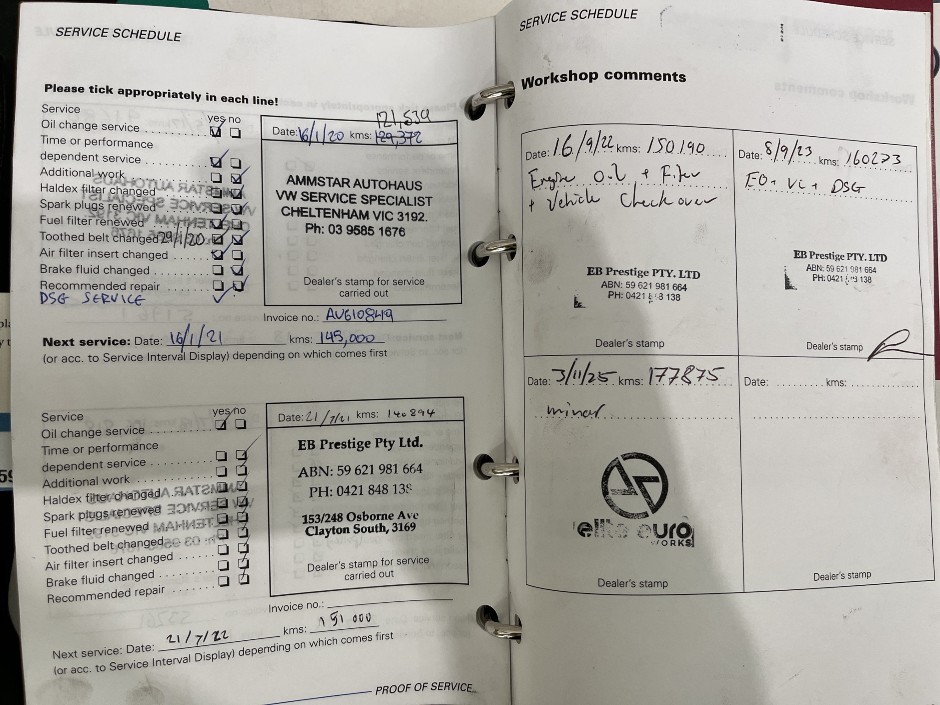 SERVICE SCHEDULE
Please tick appropriately in each line!
Service yes no
Oil change service
Time or performance
dependent service
Additional work
Haldex filter changed
Spark plugs renewed
Fuel filter renewed
Toothed belt changed 29/1/20
Air filter insert changed
Brake fluid changed
Recommended repair
DSG SERVICE
121,539
Date: 16/1/20 kms: 129,372
AMMSTAR AUTOHAUS
VW SERVICE SPECIALIST
CHELTENHAM VIC 3192.
Ph: 03 9585 1676
Dealer's stamp for service
carried out
Invoice no.: AV610849
Next service: Date: 16/1/21 kms: 145,000
(or acc. to Service Interval Display) depending on which comes first
Service yes no
Oil change service
Time or performance
dependent service
Additional work
Haldex filter changed
Spark plugs renewed
Fuel filter renewed
Toothed belt changed
Air filter insert changed
Brake fluid changed
Recommended repair
Date: 21/7/21 kms: 140894
EB Prestige Pty Ltd.
ABN: 59 621 981 664
PH: 0421 848 138
153/248 Osborne Ave
Clayton South, 3169
Dealer's stamp for service
carried out
Invoice no.:
Next service: Date: 21/7/22 kms: 151 000
(or acc. to Service Interval Display) depending on which comes first
PROOF OF SERVICE
SERVICE SCHEDULE
Workshop comments
Date: 16/9/22 kms: 150190
Engine Oil + Filter
+ Vehicle Check over
EB Prestige PTY. LTD
ABN: 59 621 981 664
PH: 0421 138
Dealer's stamp
Date: 8/9/23 kms: 160273
EO + VC + DSG
EB Prestige PTY. LTD
ABN: 59 621 981 664
PH: 0421 138
Dealer's stamp
Date: 3/11/25 kms: 177875
minor
elite euro
WORKS
Dealer's stamp
Date: kms:
Dealer's stamp